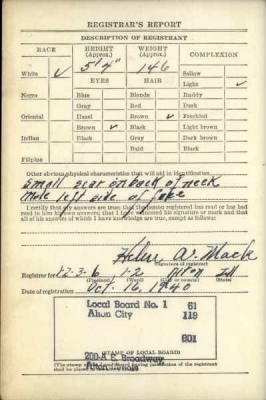 REGISTRAR'S REPORT
DESCRIPTION OF REGISTRANT
RACE HEIGHT (Approx.) WEIGHT (Approx.) COMPLEXION
White ✓ 5'4" 146 Sallow
EYES HAIR Light ✓
Negro Blue Blonde Ruddy
Gray Red Dark
Oriental Hazel Brown ✓ Freckled
Brown ✓ Black Light brown
Indian Black Gray Dark brown
Bald Black
Filipino
Other obvious physical characteristics that will aid in identification
Small scar on back of neck
Mole left side of face
I certify that my answers are true; that the person registered has read or has had
read to him his own answers; that I have witnessed his signature or mark and that
all of his answers of which I have knowledge are true, except as follows:
Helen A. Mack
(Signature of registrar)
Registrar for 12-3-6 1-2 Alton Ill
(Precinct) (Ward) (City or county) (State)
Date of registration Oct. 16, 1940
Local Board No. 1 61
Alton City 119
601
200-A E. Broadway
STAMP OF LOCAL BOARD
(The stamp of the Local Board having jurisdiction of the registrant
shall be placed in the above space.)